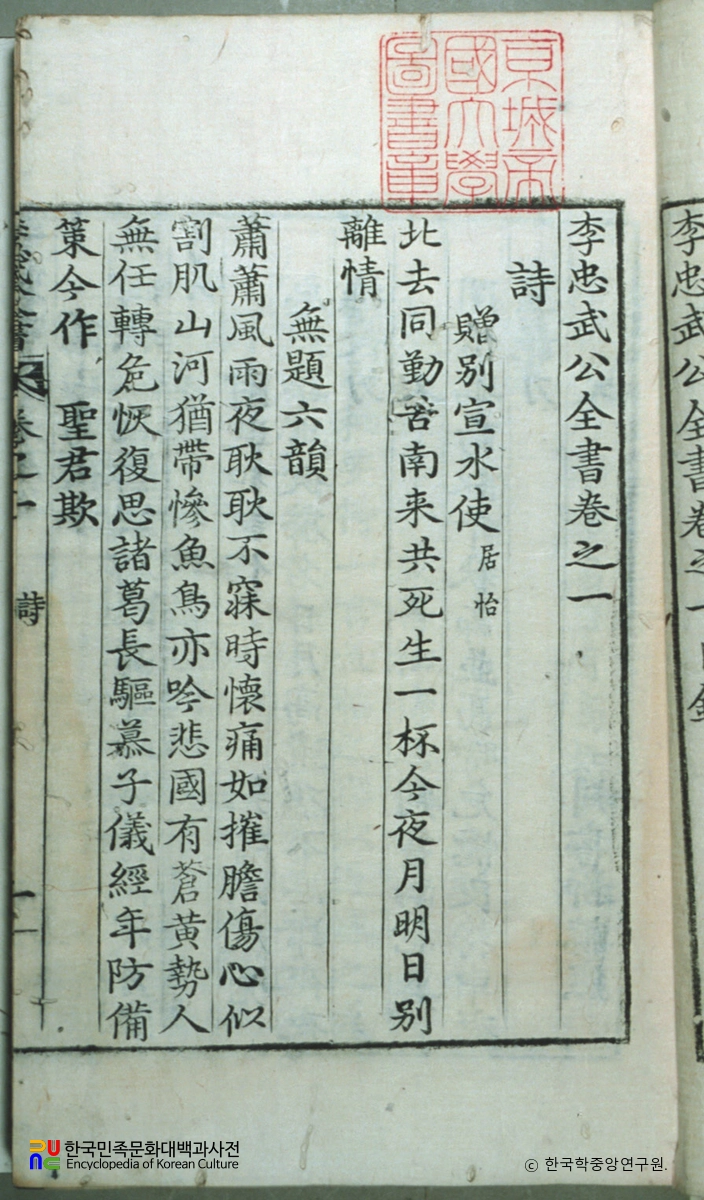 京城帝
國大學
圖書章
李忠武公全書卷之一
詩
贈別宣水使 居怡
北去同勤苦南来共死生一杯今夜月明日别
離情
無題六韻
蕭蕭風雨夜耿耿不寐時懷痛如摧膽傷心似
割肌山河猶帶慘魚鳥亦吟悲國有蒼黃勢人
無任轉危恢復思諸葛長驅慕子儀經年防備
策今作 聖君欺
李忠武公全書 卷之一 詩 一
李忠武公全書卷之一目錄
한국민족문화대백과사전
Encyclopedia of Korean Culture
© 한국학중앙연구원.